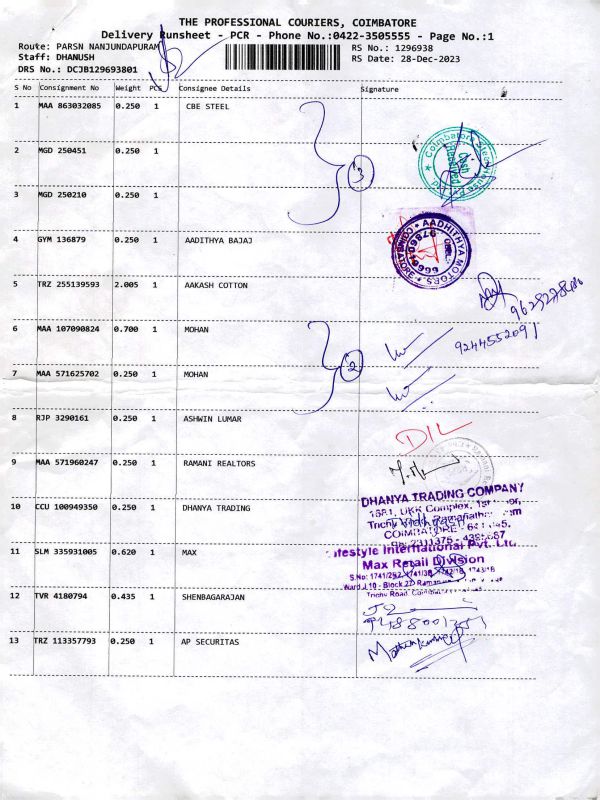 THE PROFESSIONAL COURIERS, COIMBATORE
Delivery Runsheet - PCR - Phone No.:0422-3505555 - Page No.:1
Route: PARSN NANJUNDAPURAM
RS No.: 1296938
Staff: DHANUSH
RS Date: 28-Dec-2023
DRS No.: DCJB129693801
S No Consignment No Weight PCS Consignee Details Signature
1 MAA 863032085 0.250 1 CBE STEEL
2 MGD 250451 0.250 1
3
3 MGD 250210 0.250 1
4 GYM 136879 0.250 1 AADITHYA BAJAJ
AADHITHYA MOTORS
COIMBATORE
5 TRZ 255139593 2.005 1 AAKASH COTTON
6 MAA 107090824 0.700 1 MOHAN
9244552091
2
7 MAA 571625702 0.250 1 MOHAN
8 RJP 3290161 0.250 1 ASHWIN LUMAR
DIL
9 MAA 571960247 0.250 1 RAMANI REALTORS
DHANYA TRADING COMPANY
10 CCU 100949350 0.250 1 DHANYA TRADING
1681, UKK Complex,
Trichy
COIMBATORE
Ph: 2311375
Lifestyle International Pvt. Ltd
11 SLM 335931005 0.620 1 MAX
Max Retail Division
S.No: 1741/2
Ward J, 10 - Block 27
Trichy Road,
12 TVR 4180794 0.435 1 SHENBAGARAJAN
13 TRZ 113357793 0.250 1 AP SECURITAS